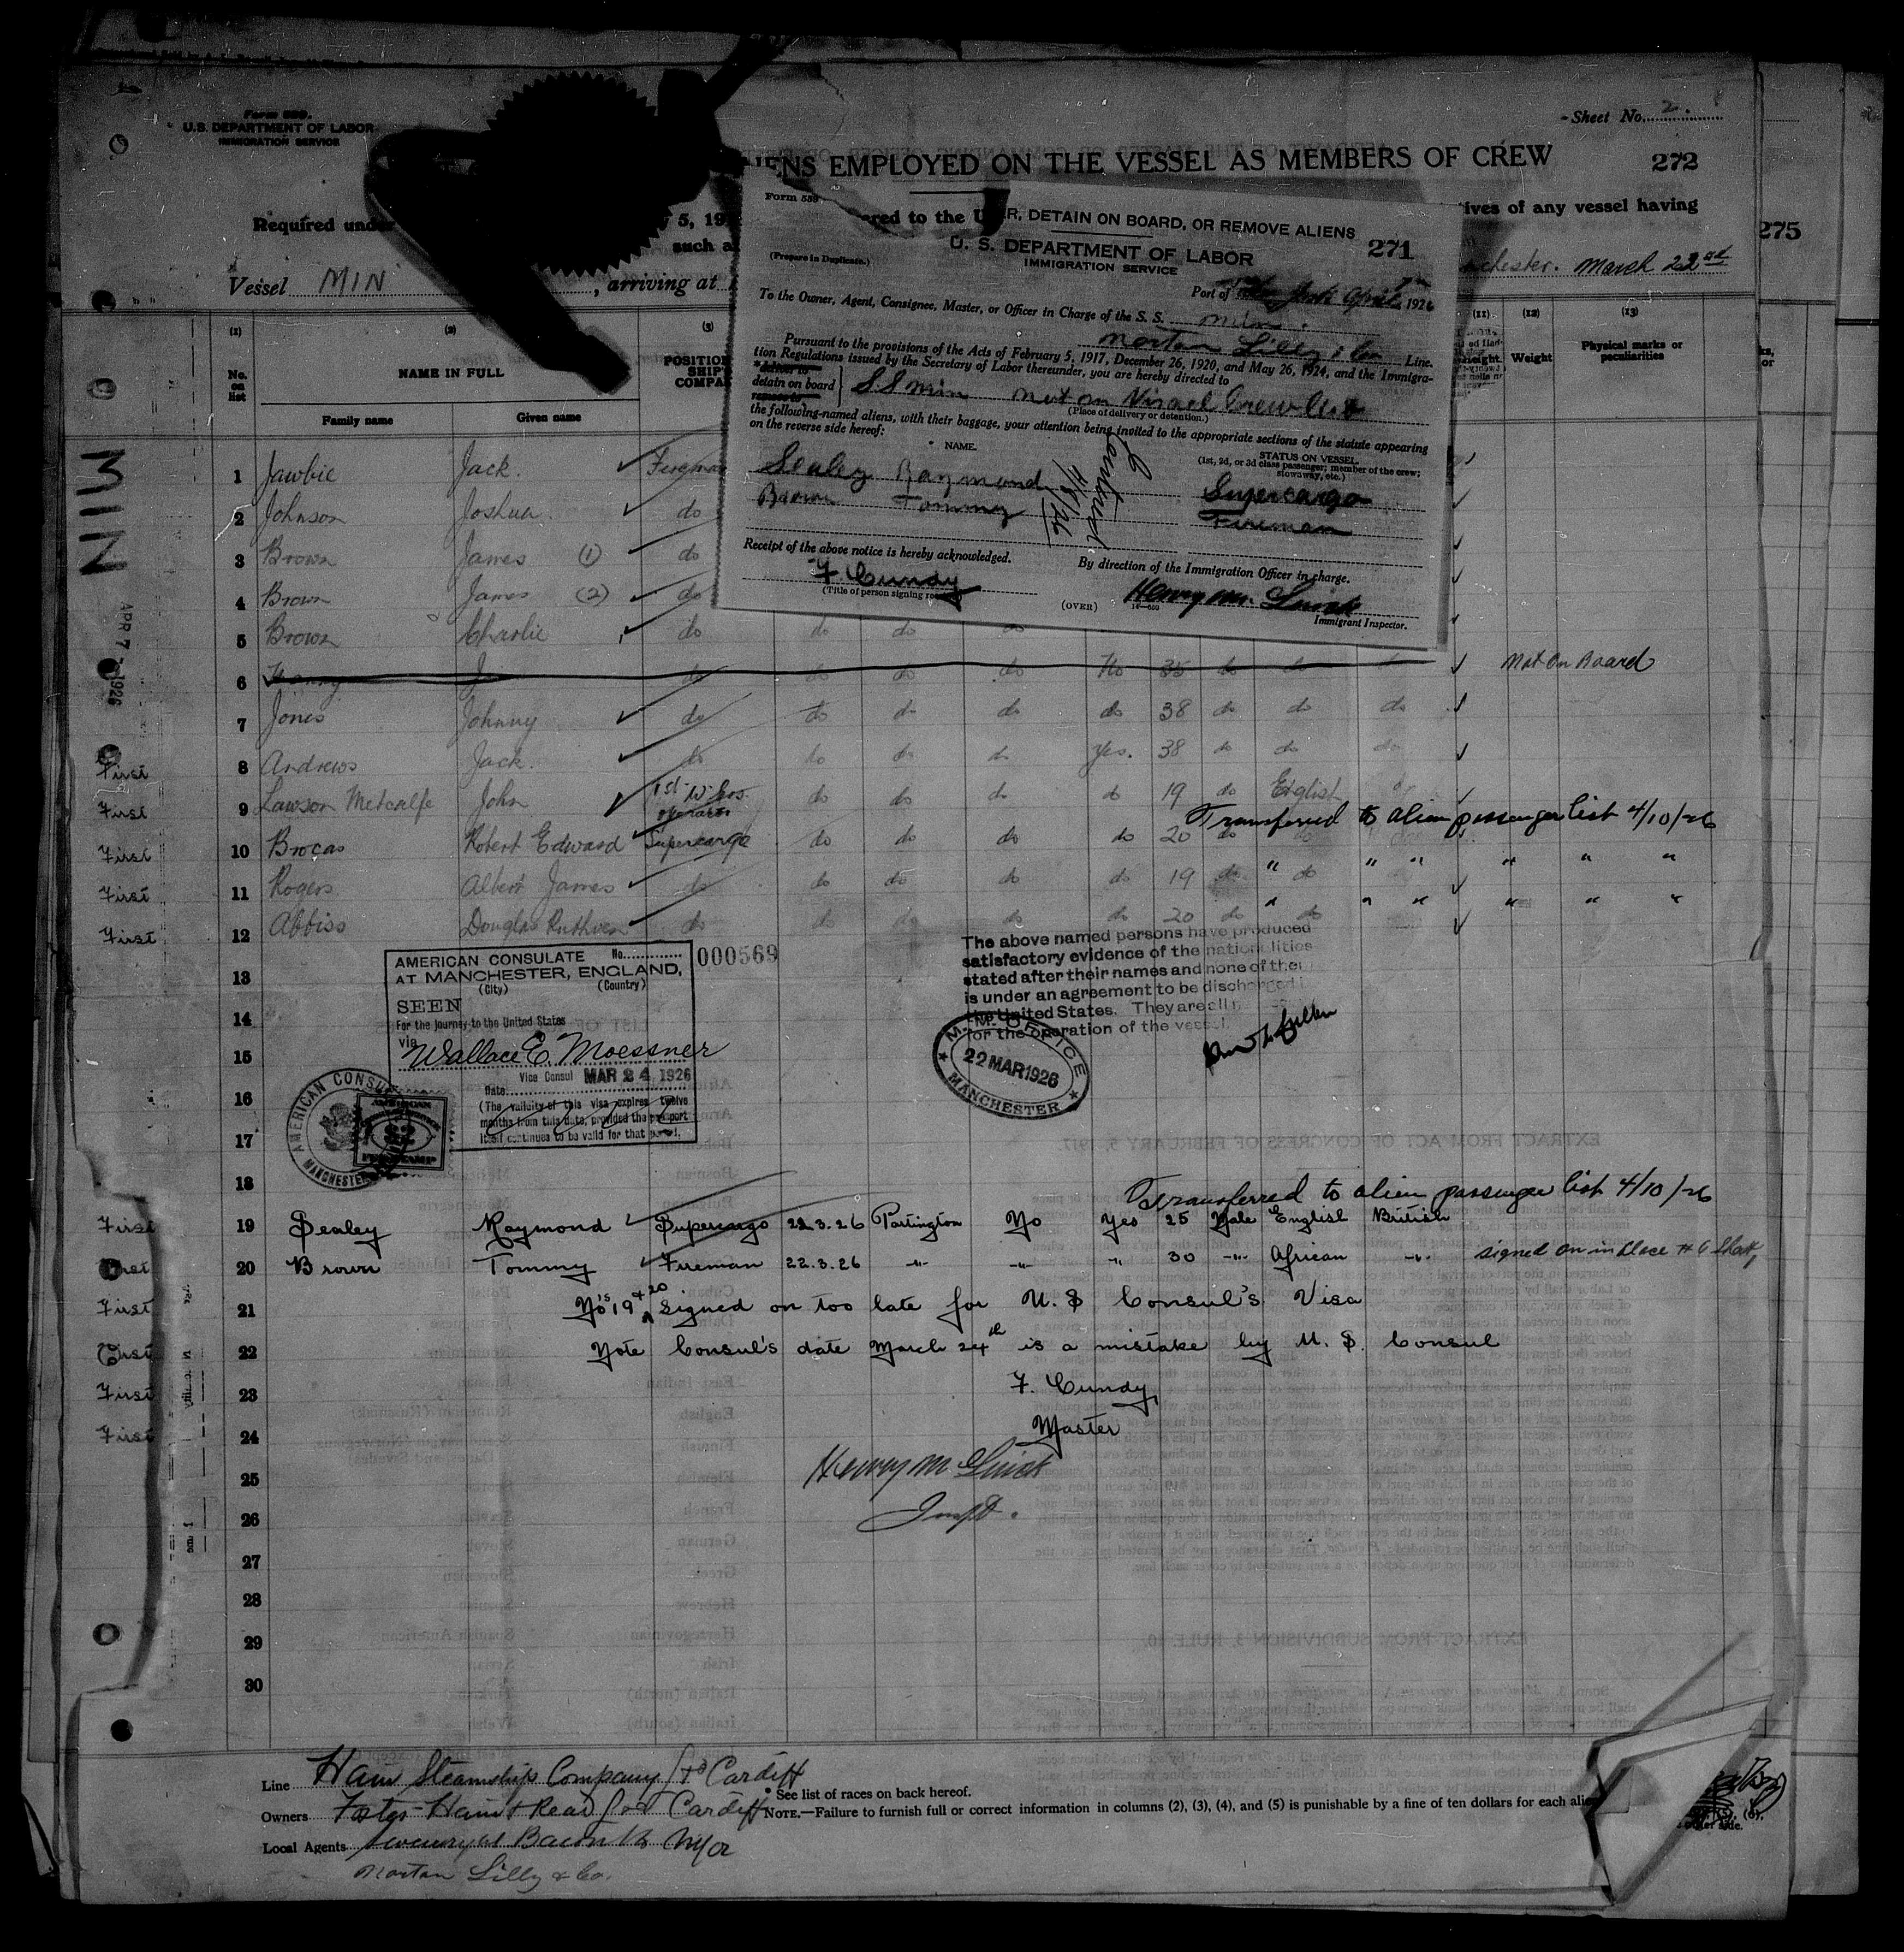 Form 689.
U.S. DEPARTMENT OF LABOR
IMMIGRATION SERVICE
Sheet No. 2.
IENS EMPLOYED ON THE VESSEL AS MEMBERS OF CREW
272
275
Required under
5, 19
ered to the U
tives of any vessel having
such a
Vessel MIN , arriving at
chester. March 22nd
Form 539
R, DETAIN ON BOARD, OR REMOVE ALIENS
U. S. DEPARTMENT OF LABOR
IMMIGRATION SERVICE
271
(Prepare in Duplicate.)
Port of New York April 7 1926
To the Owner, Agent, Consignee, Master, or Officer in Charge of the S. S. Min.
Norton Lilly & Co Line.
Pursuant to the provisions of the Acts of February 5, 1917, December 26, 1920, and May 26, 1924, and the Immigra-
tion Regulations issued by the Secretary of Labor thereunder, you are hereby directed to
deliver to
detain on board
remove to
S.S Min not on Visaed Crew List
(Place of delivery or detention.)
the following-named aliens, with their baggage, your attention being invited to the appropriate sections of the statute appearing
on the reverse side hereof:
* NAME.
STATUS ON VESSEL
(1st, 2d, or 3d class passenger; member of the crew;
stowaway, etc.)
Sealey Raymond Supercargo
Brown Tommy Fireman
Receipt of the above notice is hereby acknowledged.
By direction of the Immigration Officer in charge.
F Cundy
(Title of person signing
(OVER)
Immigrant Inspector.
(1)
(2)
(3)
(11)
(12)
(13)
No.
on
list
NAME IN FULL
Family name
Given name
POSITION
SHIP'S
COMPA
Height.
Weight
Physical marks or
peculiarities
MIN
APR 7 1926
1 Jack. Fireman
2 Johnson Joshua do
3 Brown James (1) do
4 Brown James (2) do
5 Brown Charlie do do do do
6 do do do do No 35 do do do Not On Board
7 Jones Johnny do do do do do 38 do do do
8 Andrews Jack. do do do do Yes. 38 do do do
First
9 Lawson Metcalfe John 1st W'less operator do do do do 19 do English do
First
Transferred to alien passenger list 4/10/26
10 Brocas Robert Edward Supercargo do do do do 20 do do
First
11 Rogers Albert James do do do do do 19 do do " " " " " "
First
12 Abbiss Douglas Ruthven do do do do do 20 do do " " " " " "
First
AMERICAN CONSULATE No.
000569
AT MANCHESTER, ENGLAND,
(City) (Country)
SEEN
For the journey to the United States
via
Wallace E. Moessner
Vice Consul MAR 24 1926
Date
(The validity of this visa expires twelve
months from this date, provided the passport
itself continues to be valid for that period.
AMERICAN CONSU
MANCHESTER
The above named persons have produced
satisfactory evidence of the nationalities
stated after their names and none of them
is under an agreement to be discharged
the United States. They are all
for the operation of the vessel.
M.M. OFFICE
22 MAR 1926
MANCHESTER
13
14
15
16
17
18
Transferred to alien passenger list 4/10/26
First
19 Sealey Raymond Supercargo 22.3.26 Partington No Yes 25 Male English British
20 Brown Tommy Fireman 22.3.26 -"- -"- -"- 30 -"- African -"- signed on in place #6
First
21 No's 19 & 20 Signed on too late for U.S Consul's Visa
22 Note Consul's date March 24th is a mistake by U.S. Consul
First
23 F. Cundy
First
24 Master
25
Inspt.
26
27
28
29
30
Line Hain Steamship Company Ltd Cardiff
* See list of races on back hereof.
Owners Foster Hain & Read Ltd Cardiff
NOTE.—Failure to furnish full or correct information in columns (2), (3), (4), and (5) is punishable by a fine of ten dollars for each alie
Local Agents
Norton Lilly & Co.